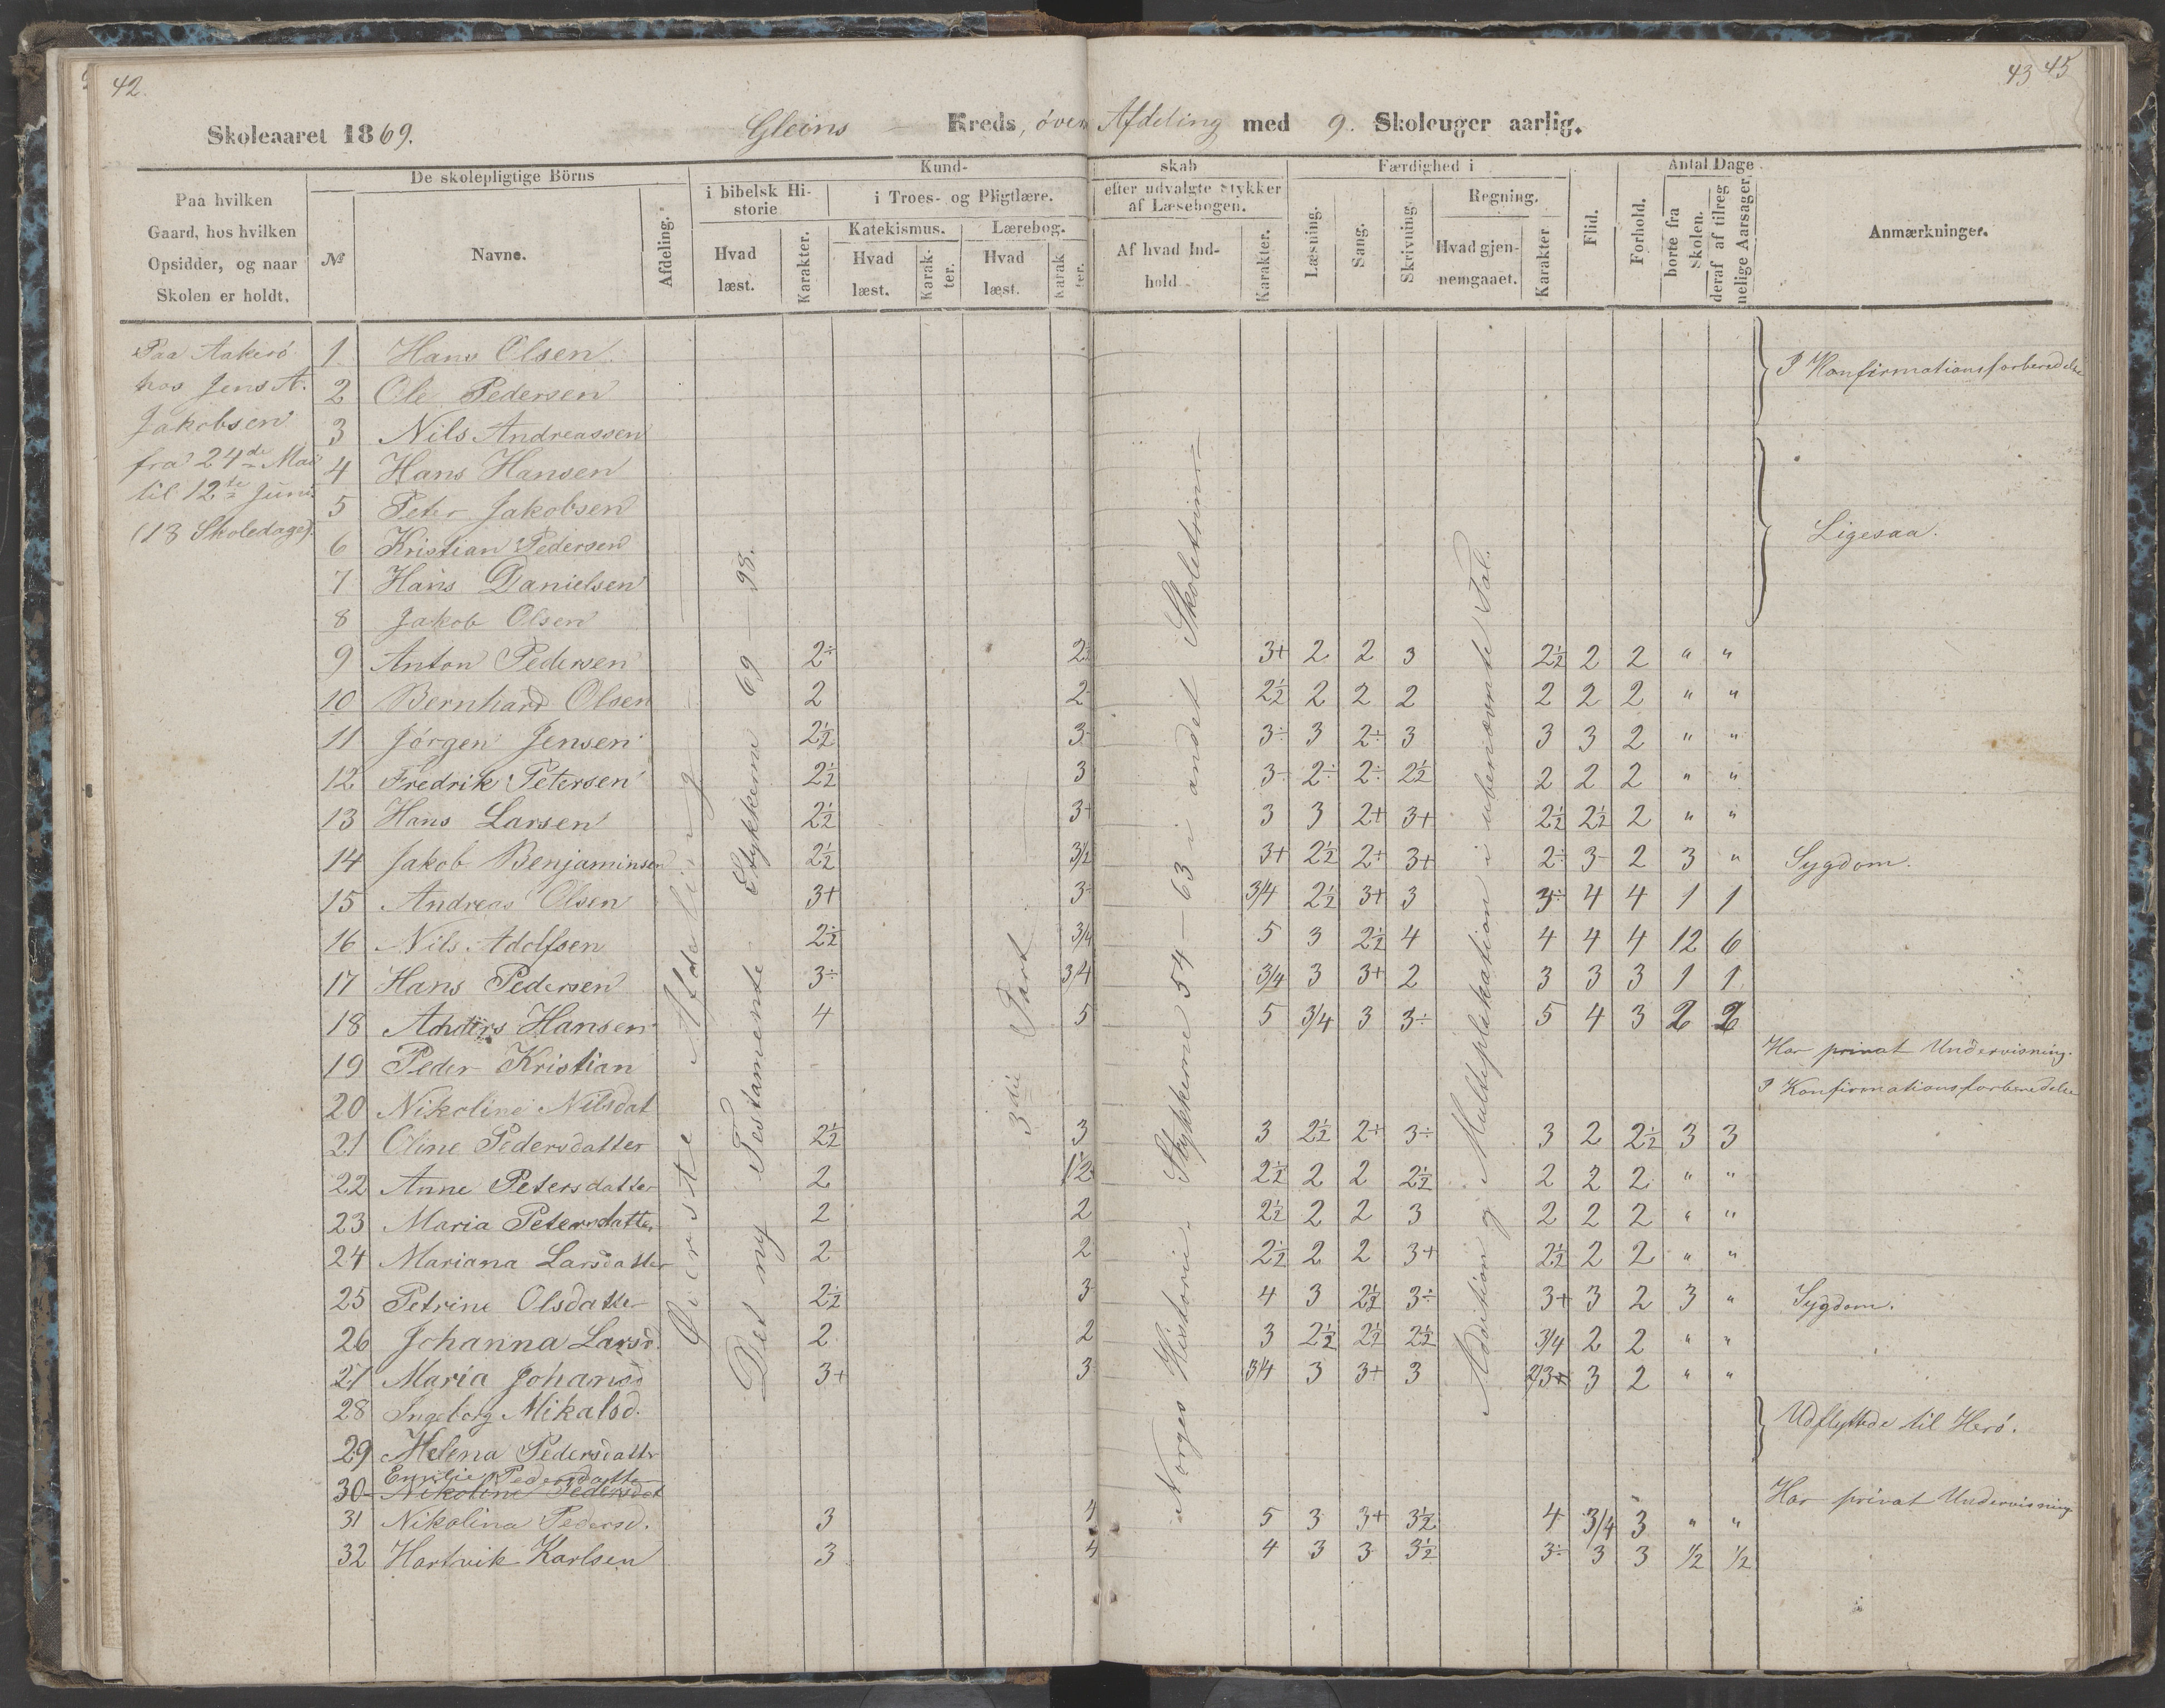 42.
43 45
Skoleaaret 1869. Gleins Kreds, över Afdeling med 9. Skoleuger aarlig.
Paa hvilken Gaard, hos hvilken Opsidder, og naar Skolen er holdt.
De skolepligtige Börns
№ Navne. Afdeling.
Kundskab
i bibelsk Historie Hvad læst. Karakter.
i Troes- og Pligtlære.
Katekismus. Hvad læst. Karakter.
Lærebog. Hvad læst. Karakter.
efter udvalgte Stykker af Læsebogen. Af hvad Indhold Karakter.
Færdighed i
Læsning. Sang. Skrivning.
Regning. Hvad gjennemgaaet. Karakter
Flid. Forhold.
Antal Dage borte fra Skolen. deraf af tilregnelige Aarsager.
Anmærkninger.
Paa Aakerö
hos Jens A.
Jakobsen
fra 24de Mai
til 12te Juni.
(13 Skoledage).
Överste Afdeling
Det ny Testamente - Stykkerne 69 - 98.
3die Part
Norges Historie: Stykkerne 54 - 63 i andet Skoletrin
Addition og Multiplikation i ubenævnte Tal.
1 Hans Olsen
2 Ole Pedersen
I Konfirmationsforberedelse
3 Nils Andreassen
4 Hans Hansen
5 Peter Jakobsen
6 Kristian Pedersen
Ligesaa.
7 Hans Danielsen
8 Jakob Olsen
9 Anton Pedersen 2÷ 2½ 3+ 2 2 3 2½ 2 2 " "
10 Bernhard Olsen 2 2 2½ 2 2 2 2 2 2 " "
11 Jörgen Jensen 2½ 3 3÷ 3 2÷ 3 3 3 2 " "
12 Fredrik Petersen 2½ 3 3 2÷ 2÷ 2½ 2 2 2 " "
13 Hans Larsen 2½ 3+ 3 3 2+ 3+ 2½ 2½ 2 " "
14 Jakob Benjaminsen 2½ 3½ 3+ 2½ 2+ 3+ 2÷ 3 2 3 " Sygdom.
15 Andreas Olsen 3+ 3÷ 3/4 2½ 3+ 3 3÷ 4 4 1 1
16 Nils Adolfsen 2½ 3/4 5 3 2½ 4 4 4 4 12 6
17 Hans Pedersen 3÷ 3/4 3/4 3 3+ 2 3 3 3 1 1
18 Anders Hansen 4 5 5 3/4 3 3÷ 5 4 3 2 2
19 Peder Kristian Har privat Undervisning.
20 Nikoline Nilsdat I Konfirmationsforberedelse
21 Oline Pedersdatter 2½ 3 3 2½ 2+ 3÷ 3 2 2½ 3 3
22 Anne Petersdatter 2 1/2 2½ 2 2 2½ 2 2 2 " "
23 Maria Petersdatter 2 2 2½ 2 2 3 2 2 2 " "
24 Mariana Larsdatter 2 2 2½ 2 2 3+ 2½ 2 2 " "
25 Petrine Olsdatter 2½ 3 4 3 2½ 3÷ 3+ 3 2 3 " Sygdom.
26 Johanna Larsd. 2 2 3 2½ 2½ 2½ 3/4 2 2 " "
27 Maria Johansd 3+ 3 3/4 3 3+ 3 3+ 3 2 " "
28 Ingeborg Mikalsd.
29 Helena Pedersdatter
Udflyttede til Herö.
Emilie Pedersdatter
30 Nikoline Pedersdat Har privat Undervisning
31 Nikolina Pedersd. 3 4 5 3 3+ 3½ 4 3/4 3 " "
32 Hartvik Karlsen 3 4 4 3 3 3½ 3÷ 3 3 ½ ½